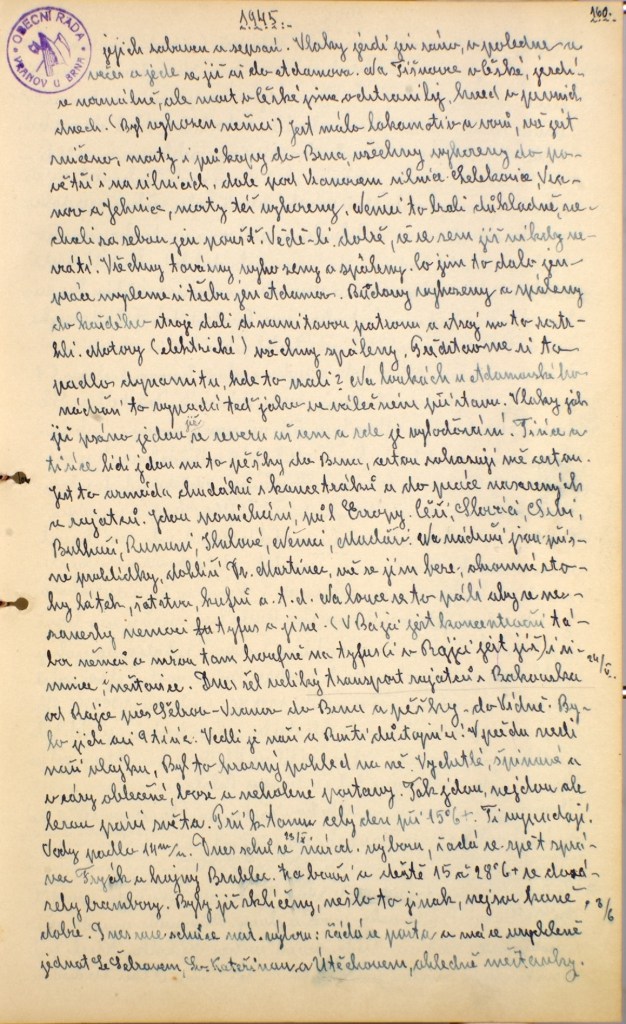 1945.
160.
OBECNÍ RADA
VRANOV U BRNA
jejich zabaven a sepsán. Vlaky jezdí jen ráno, v poledne a
večer a jede se již až do Adamova. Na Tišnovce v České, jezdí
se normálně, ale most v České jsme odstranili, hned v prvních
dnech. (Byl vyhozen němci) Jest málo lokomotiv a vozů, vše jest
zničeno, mosty i průkopy do Brna, všechny vyhozeny do po-
větří i na silnicích, dole pod Vranovem silnice Lelekovice, Vra-
nov a Jehnice, mosty též vyhozeny. Němci to brali důkladně, ne-
chali za sebou jen poušť. Věděli dobře, že se sem již nikdy ne-
vrátí. Všechny továrny vyhozeny a spáleny. Co jim to dalo jen
práce vezmeme si třeba jen Adamov. Budovy vyhozeny a spáleny
do každého stroje dali dinamitovou patronu a stroj na to roztr-
hli. Motory (elektrické) všechny spáleny. Představme si to
padlo dynamitu, kde to vzali? Na loukách u Adamovského
nádraží to vypadá teď jako ve válečném přístavu. Vlaky jak
již psáno jedou již se severu až sem a zde je vyloďování. Tisíce a
tisíce lidí jdou na to pěšky do Brna, cestou
Jest to armáda chudáků z koncentráků a do práce
a zajatců. Jdou pomícháni, půl Evropy. Češi, Slováci, Srbi,
Bulhaři, Rumuni, Italové, Němci, Maďaři. Na nádraží jsou přís-
né prohlídky, dohlíží Fr. Martinec, vše se jim bere, ohromné sto-
hy látek, šatstva, kufrů a t. d. Na louce se to pálí aby se ne-
zanesly nemoci tyfus a jiné. (V Rájci jest koncentrační tá-
bor němců a mrou tam houfně na tyfus (i v Rájci jest již) i zi-
mnice, neštovice. Dnes šel veliký transport zajatců z Rakouska 24/V.
od Rájce přes Šebrov-Vranov do Brna a pěšky - do Vídně. By-
lo jich asi 9 tisíc. Vedli je naši a Ruští důstojníci. V předu nesli
naši vlajku. Byl to hrozný pohled na ně. Vychrtlé, špinavé a
v cáry oblečené, bosé a neholené postavy. Tak jdou, nejdou ale
lezou páni světa. Prší k tomu celý den při 15°C+. Ti vypadají.
Vody padlo 14 m/m. Dnes schůze 25/V národ. výboru, žádá se zpět sprá-
vce Fryák a hajný Brablec. Za bouří a deště 15 až 28°C+ se dosá-
zely brambory. Byly již sklíčeny, nešlo to jinak, nejsou koně, 3/6
dobré. Dnes zase schůze nár. výboru: žádá se pošta a má se urychleně
jednat se Šebrovem, Sv. Kateřinou, a Útěchovem, ohledně měšťanky.